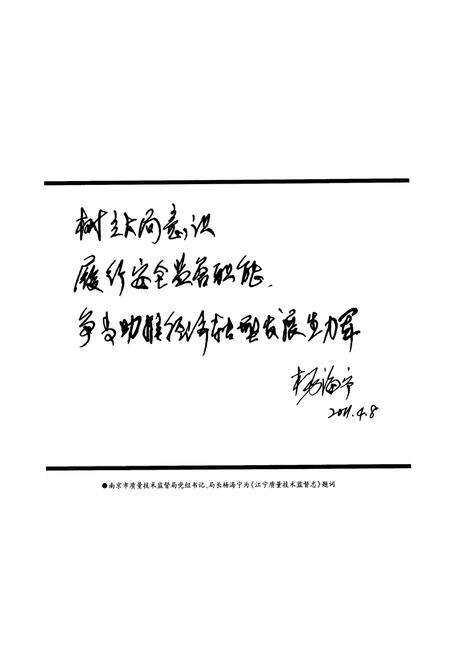 树立大局意识
履行安全监督职能.
争当助推经济转型发展生力军
杨海宁
2011.4.8
●南京市质量技术监督局党组书记、局长杨海宁为《江宁质量技术监督志》题词